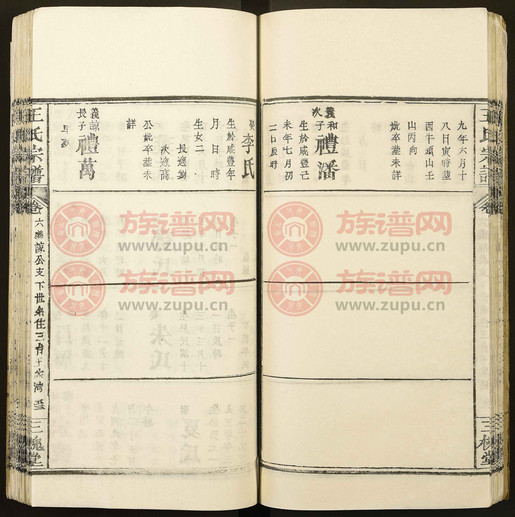 王氏宗譜
三槐堂
九年六月十
八日寅時葬
酉午頭山壬
山丙向
妣卒葬未詳
義和
次子
禮潘
生於咸豐己
未年七月初
二日辰時
娶李氏
生於咸豐年
月日時
生女二
長適劉
次適萬
公妣卒葬未
詳
義諒
長子
禮萬
王氏宗譜
卷
三槐堂
族谱网
www.zupu.cn
族谱网
www.zupu.cn
族谱网
www.zupu.cn
族谱网
www.zupu.cn
族谱网
www.zupu.cn
族谱网
www.zupu.cn